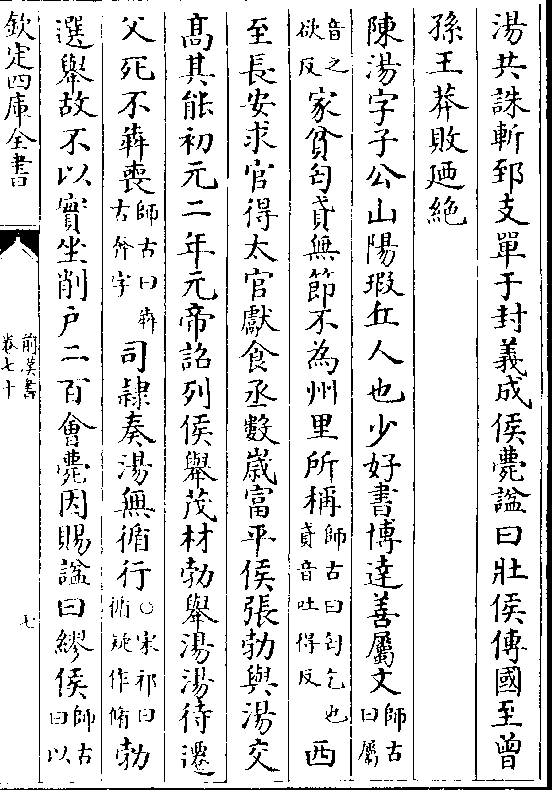 湯共誅斬郅支單于封義成侯薨諡曰壯侯傳國至曾
孫王莽敗廼絶
陳湯字子公山陽瑕丘人也少好書博達善屬文師古曰屬
音之欲反家貧匄貣無節不為州里所稱師古曰匄乞也貣音吐得反西
至長安求官得太官獻食丞數嵗富平侯張勃與湯交
髙其能初元二年元帝詔列侯舉茂材勃舉湯湯待遷
父死不犇喪師古曰犇古奔字司隷奏湯無循行○宋祁曰循疑作脩勃
選舉故不以實坐削户二百會薨因賜諡曰繆侯師古曰以
欽定四庫全書
前漢書
卷七十
七